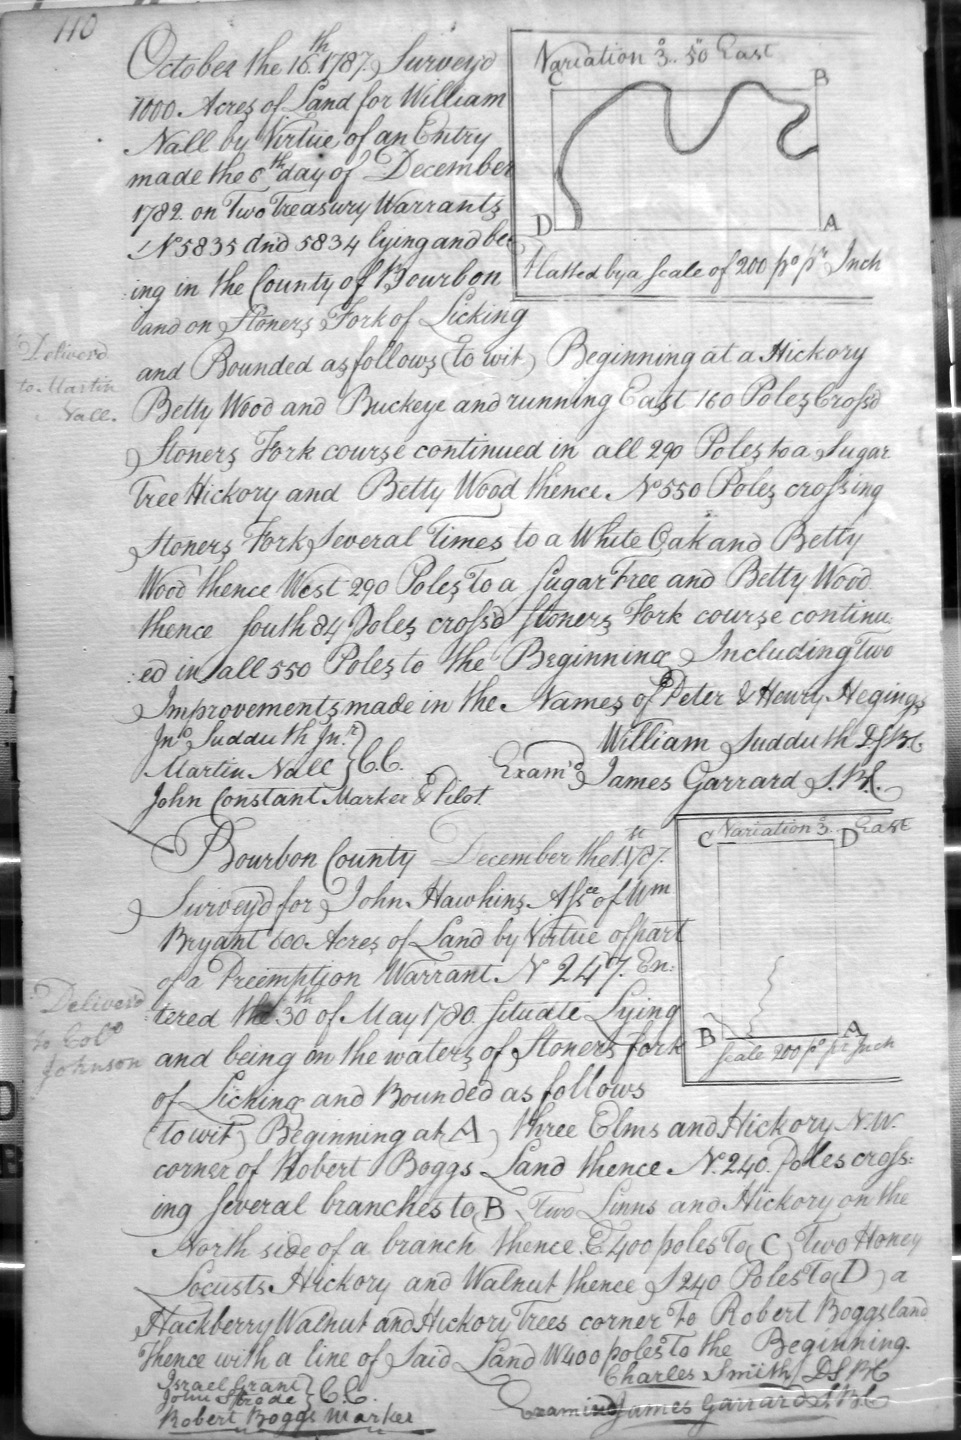 110
October the 16th 1787. Survey'd
1000 Acres of Land for William
Nall by Virtue of an Entry
made the 6th day of December
1782. on Two Treasury Warrants
No 5835 and 5834 lying and be
ing in the County of Bourbon
and on Stoners Fork of Licking
and Bounded as follows (to wit) Beginning at a Hickory
Betty Wood and Buckeye and running East 160 Poles Cross'd
Stoners Fork course continued in all 290 Poles to a Sugar
Tree Hickory and Betty Wood thence No 550 Poles crossing
Stoners Fork Several Times to a White Oak and Betty
Wood thence West 290 Poles To a Sugar Tree and Betty Wood
thence South 84 Poles cross'd Stoners Fork course continu
:ed in all 550 Poles to the Beginning Including Two
Improvements made in the Names of Peter & Henry Hegings
Jno Sudduth Jnr
Martin Nall } C.C.
John Constant Marker & Pilot
William Sudduth D.S.B.C
Exam'd James Garrard S.B.C.
Variation 3°. 50 East
C B
D A
Platted by a Scale of 200 po pr Inch
Deliver'd
to Martin
Nall.
Bourbon County December the 1st 1787.
Survey'd for John Hawkins Assee of Wm
Bryant 600 Acres of Land by Virtue of part
of a Preemption Warrant N 247. En:
tered the 30th of May 1780. Situate Lying
and being on the waters of Stoners fork
of Licking and Bounded as follows
(to wit) Beginning at (A) three Elms and Hickory N.W.
corner of Robert Boggs Land thence N. 240. Poles cross:
ing Several branches to (B) Two Linns and Hickory on the
North side of a branch thence. E 400 poles To (C) Two Honey
Locusts Hickory and Walnut thence S 240 Poles To (D) a
Hackberry Walnut and Hickory Trees corner to Robert Boggs land
Thence with a line of Said Land W 400 poles To the Beginning.
Israel Grant
John Strode } C.C.
Robert Boggs Marker
Charles Smith DSBC
Examined James Garrard S.B.C
C Variation 3°. East D
B A
Scale 200 po pr Inch
Deliver'd
to Colo
Johnson